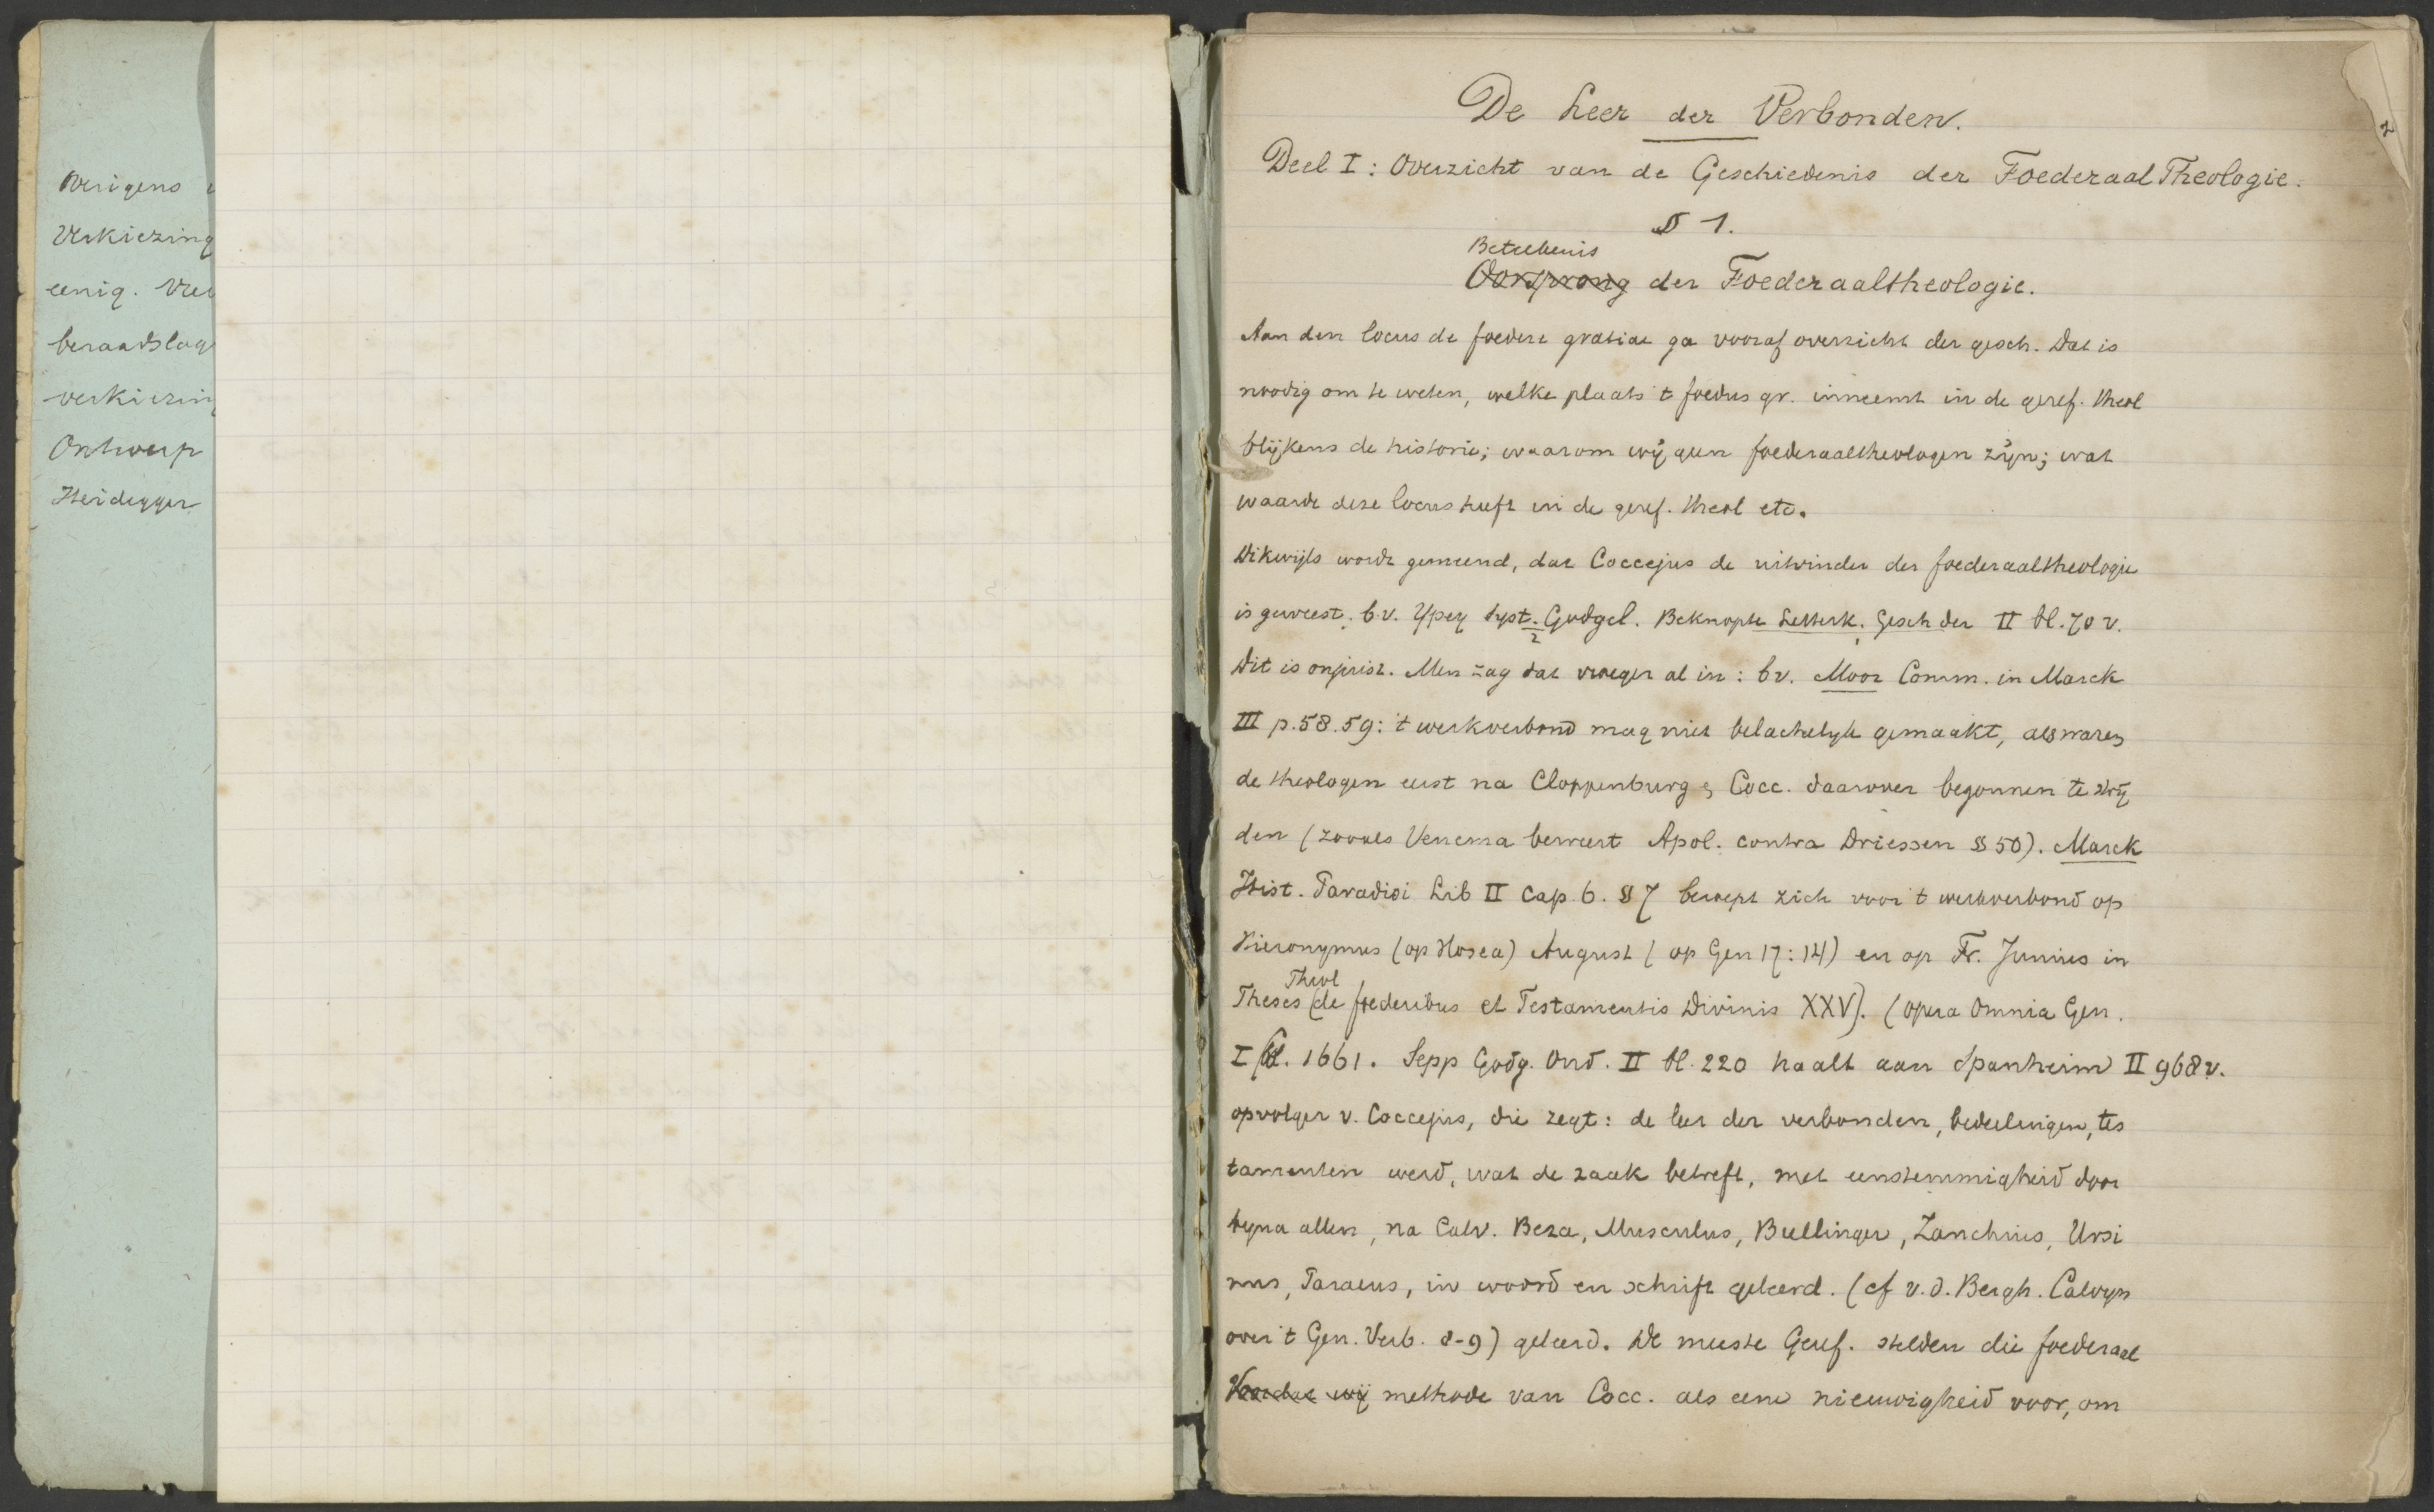 Overigens
Verkiezing
eenig. Ver
beraadslag
verkiezing
Ontwerp
Heidegger
2
De Leer der Verbonden.
Deel I: Overzicht van de Geschiedenis der Foederaal Theologie.
§ 1.
Beteekenis
Oorsprong der Foederaaltheologie.
Aan den locus de foedere gratiae ga vooraf overzicht der gesch. Dat is
noodig om te weten, welke plaats 't foedus gr. inneemt in de geref. theol
blijkens de historie; waarom wij geen foederaaltheologen zijn; wat
waarde deze locus heeft in de geref. theol etc.
Dikwijls wordt gemeend, dat Coccejus de uitvinder der foederaaltheologie
is geweest. b.v. Ypey Syst. Godgel. Beknopte Letterk. Gesch der II bl. 70 v.
2
Dit is onjuist. Men zag dat vroeger al in: bv. Moor Comm. in Marck
III p. 58. 59: 't werkverbond mag niet belachelijk gemaakt, als waren
de theologen eerst na Cloppenburg & Cocc. daarover begonnen te
den (zooals Venema beweert Apol. contra Driessen § 50). Marck
Hist. Paradisi Lib II Cap. 6. § 7 beroept zich voor 't werkverbond op
Hieronymus (op Hosea) August (op Gen 17:14) en op Fr. Junius in
Theol
Theses (de foederibus et Testamentis Divinis XXV). (opera Omnia Gen.
I bl. 1661. Sepp Godg. Ond. II bl. 220 haalt aan Spanheim II 968 v.
opvolger v. Coccejus, die zegt: de leer der verbonden, bedeelingen, tes
tamenten werd, wat de zaak betreft, met eenstemmigheid door
byna allen, na Calv. Beza, Musculus, Bullinger, Zanchius, Ursi
nus, Paraeus, in woord en schrift geleerd. (cf v.d. Bergh. Calvyn
over 't Gen. Verb. 8-9) geleerd. De meeste Geref. stelden die foederaal
Voordat wij methode van Cocc. als eene nieuwigheid voor, om